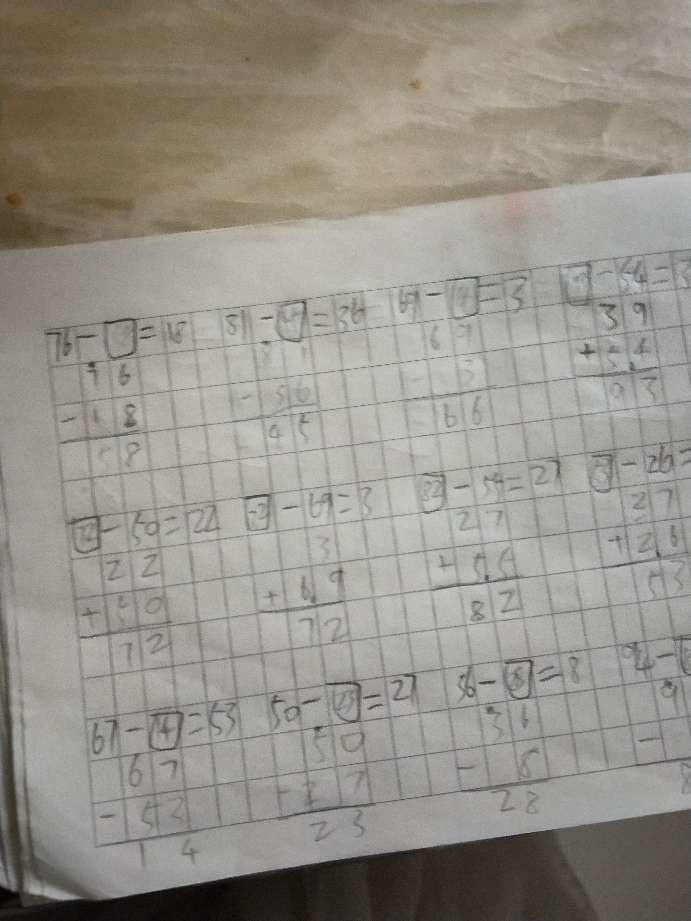 76-□=18 81-□=36 69-□=3 □-54=3
76 81 69 39
-18 -36 -3 +54
58 45 66 93
□-50=22 □-69=3 82-55=27 □-26=
22 3 27 27
+50 +69 +55 +26
72 72 82 53
67-14=53 50-23=27 36-□=8 94-
67 50 36 9
-53 -27 -8 -
14 23 28 8